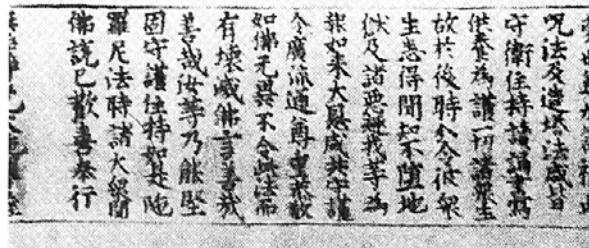 呪法及造塔法咸皆
守衛住持讀誦書寫
供養為護一切諸衆生
故於後時分令彼衆
生悉得聞知不墮地
獄及諸惡趣我等為
報如来大恩咸共守護
令廣流通尊重恭敬
如佛无異不令此法而
有壞滅佛言善哉
善哉汝等乃能堅
固守護住持如是陁
羅尼法時諸大衆聞
佛說已歡喜奉行